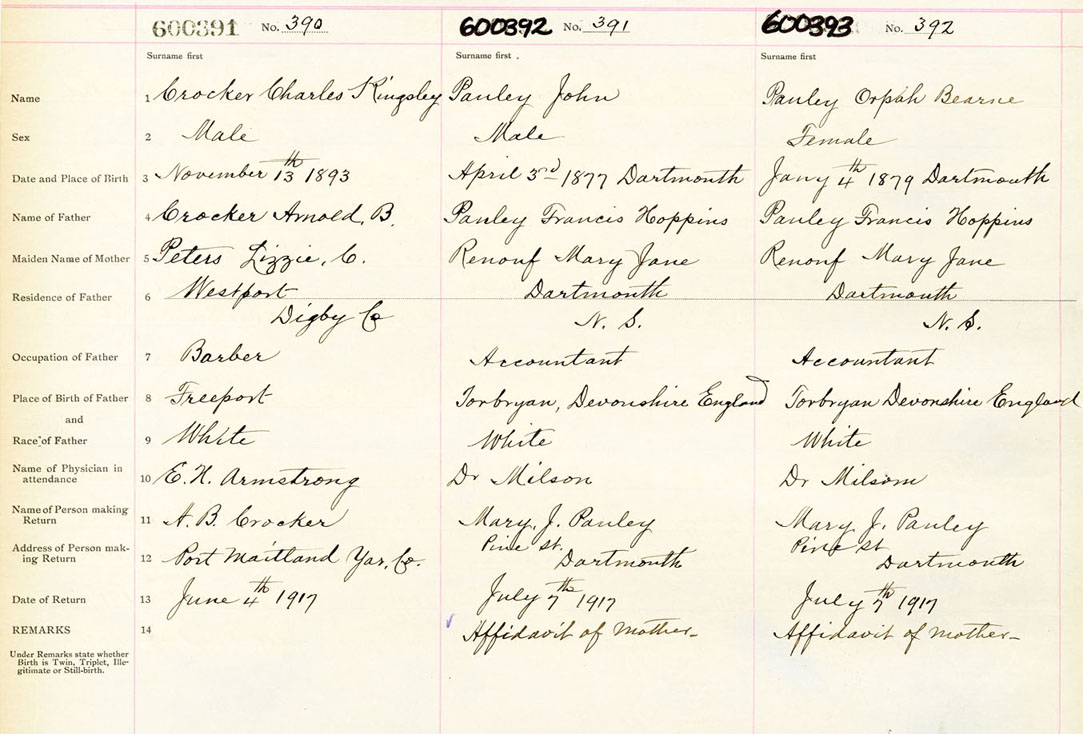 600391 No. 390 600392 No. 391 600393 No. 392
Surname first Surname first . Surname first
Name 1 Crocker Charles Kingsley Pauley John Pauley Orpah Bearne
Sex 2 Male Male Female
Date and Place of Birth 3 November 13th 1893 April 3rd 1877 Dartmouth Jany 4th 1879 Dartmouth
Name of Father 4 Crocker Arnold, B. Pauley Francis Hoppins Pauley Francis Hoppins
Maiden Name of Mother 5 Peters Lizzie, C. Renouf Mary Jane Renouf Mary Jane
Residence of Father 6 Westport Dartmouth Dartmouth
Digby Co N. S. N. S.
Occupation of Father 7 Barber Accountant Accountant
Place of Birth of Father 8 Freeport Torbryan, Devonshire England Torbryan Devonshire England
and
Race of Father 9 White White White
Name of Physician in
attendance 10 E. H. Armstrong Dr Milson Dr Milsom
Name of Person making
Return 11 A. B. Crocker Mary, J. Pauley Mary J. Pauley
Address of Person mak- Pine St. Pine St
ing Return 12 Port Maitland Yar, Co. Dartmouth Dartmouth
Date of Return 13 June 4th 1917 July 7th 1917 July 7th 1917
REMARKS 14 Affidavit of mother- Affidavit of mother-
Under Remarks state whether
Birth is Twin, Triplet, Ille-
gitimate or Still-birth.